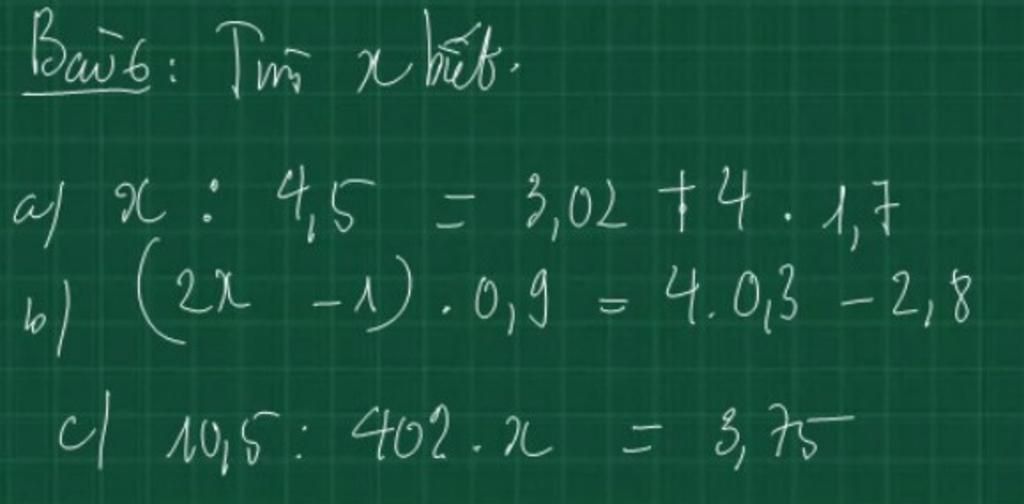 Bài 6: Tìm x biết.
a/ x : 4,5 = 3,02 + 4 . 1,7
b/ (2x - 1) . 0,9 = 4.0,3 - 2,8
c/ 10,5 : 402 . x = 3,75